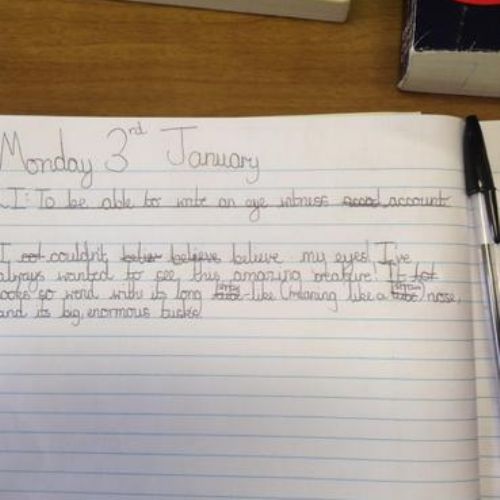 Monday 3rd January
LI: To be able to write an eye witness account.
I couldn't believe believe my eyes! I've
always wanted to see this amazing creature! It
looks so weird with its long -like (meaning like a ) nose,
and its big, enormous tusks